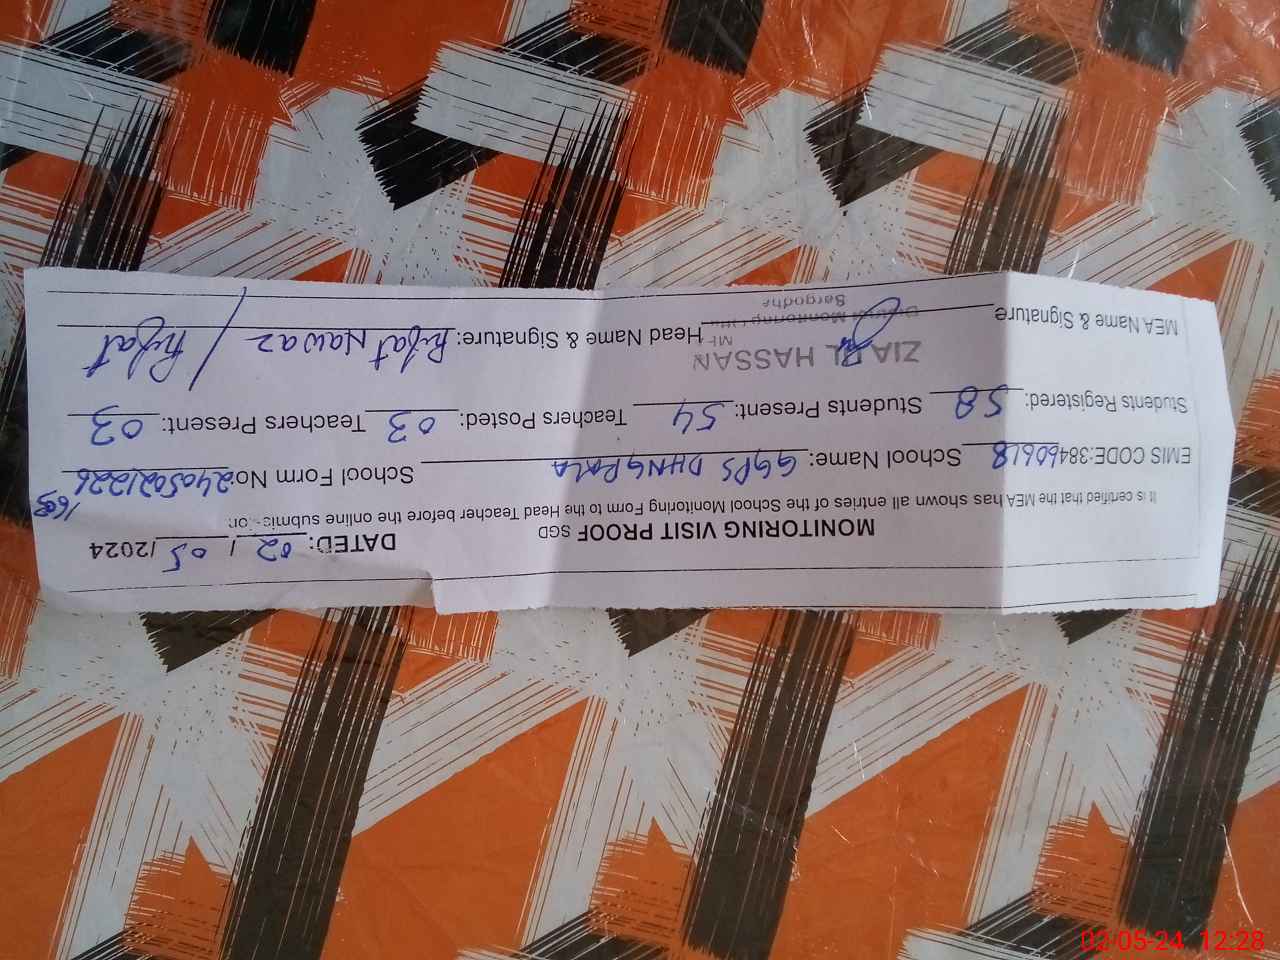 MONITORING VISIT PROOF SGD DATED: 02 / 05 /2024
It is certified that the MEA has shown all entries of the School Monitoring Form to the Head Teacher before the online submission.
EMIS CODE:38460618 School Name: GGPS DHNGRALA School Form No:
Students Registered: 58 Students Present: 54 Teachers Posted: 03 Teachers Present: 03
ZIA UL HASSAN
MEA Name & Signature Head Name & Signature: Rifat Nawaz / Rifat
Sargodha
02-05-24 12:28